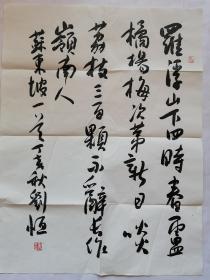 羅浮山下四時春盧
橘楊梅次第新日啖
荔枝三百顆不辭長作
嶺南人
蘇東坡一首丁亥秋劉恒